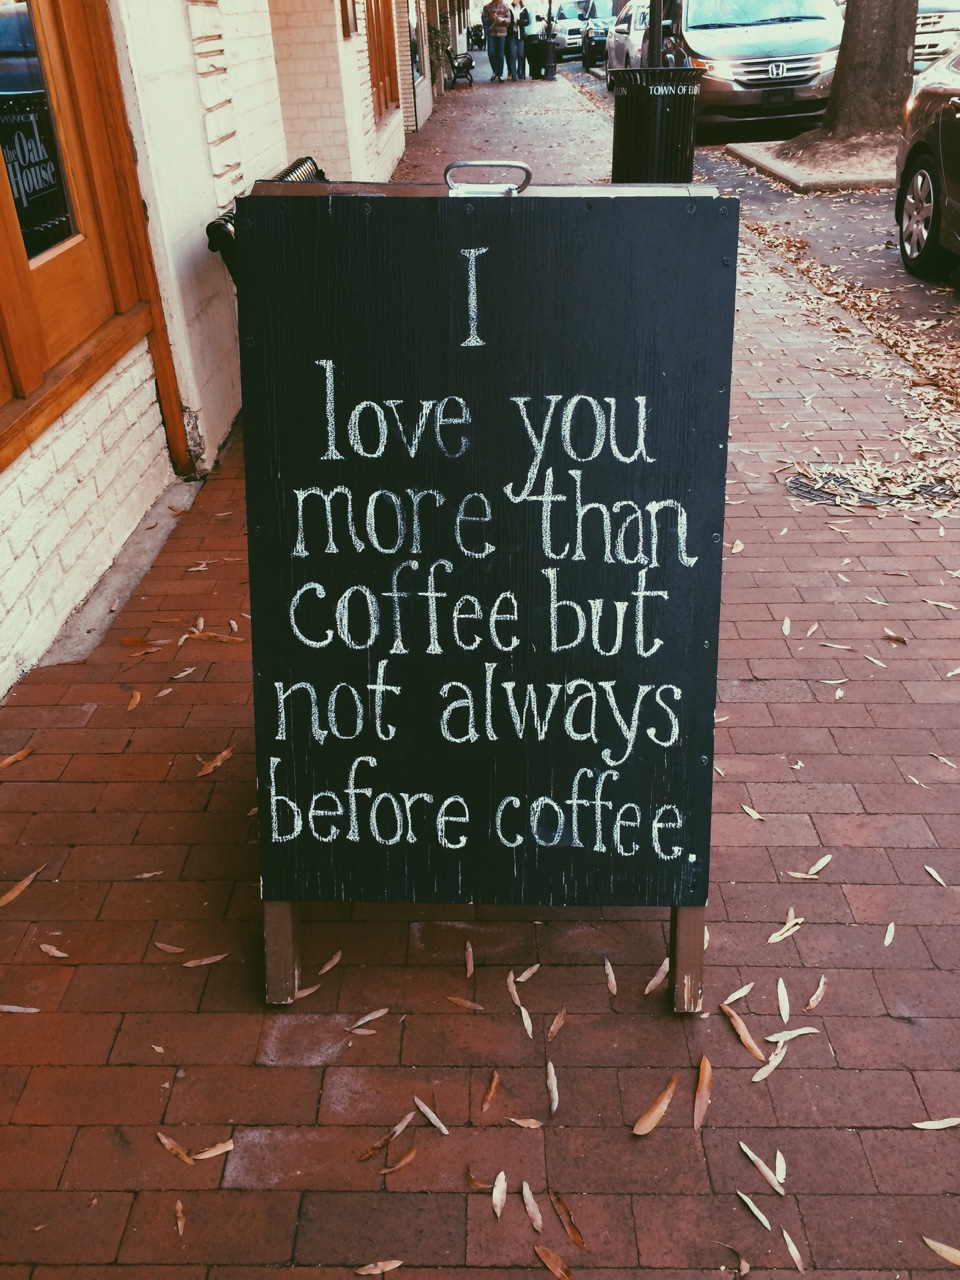 I
love you
more than
coffee but
not always
before coffee.
the Oak
House
TOWN OF EL